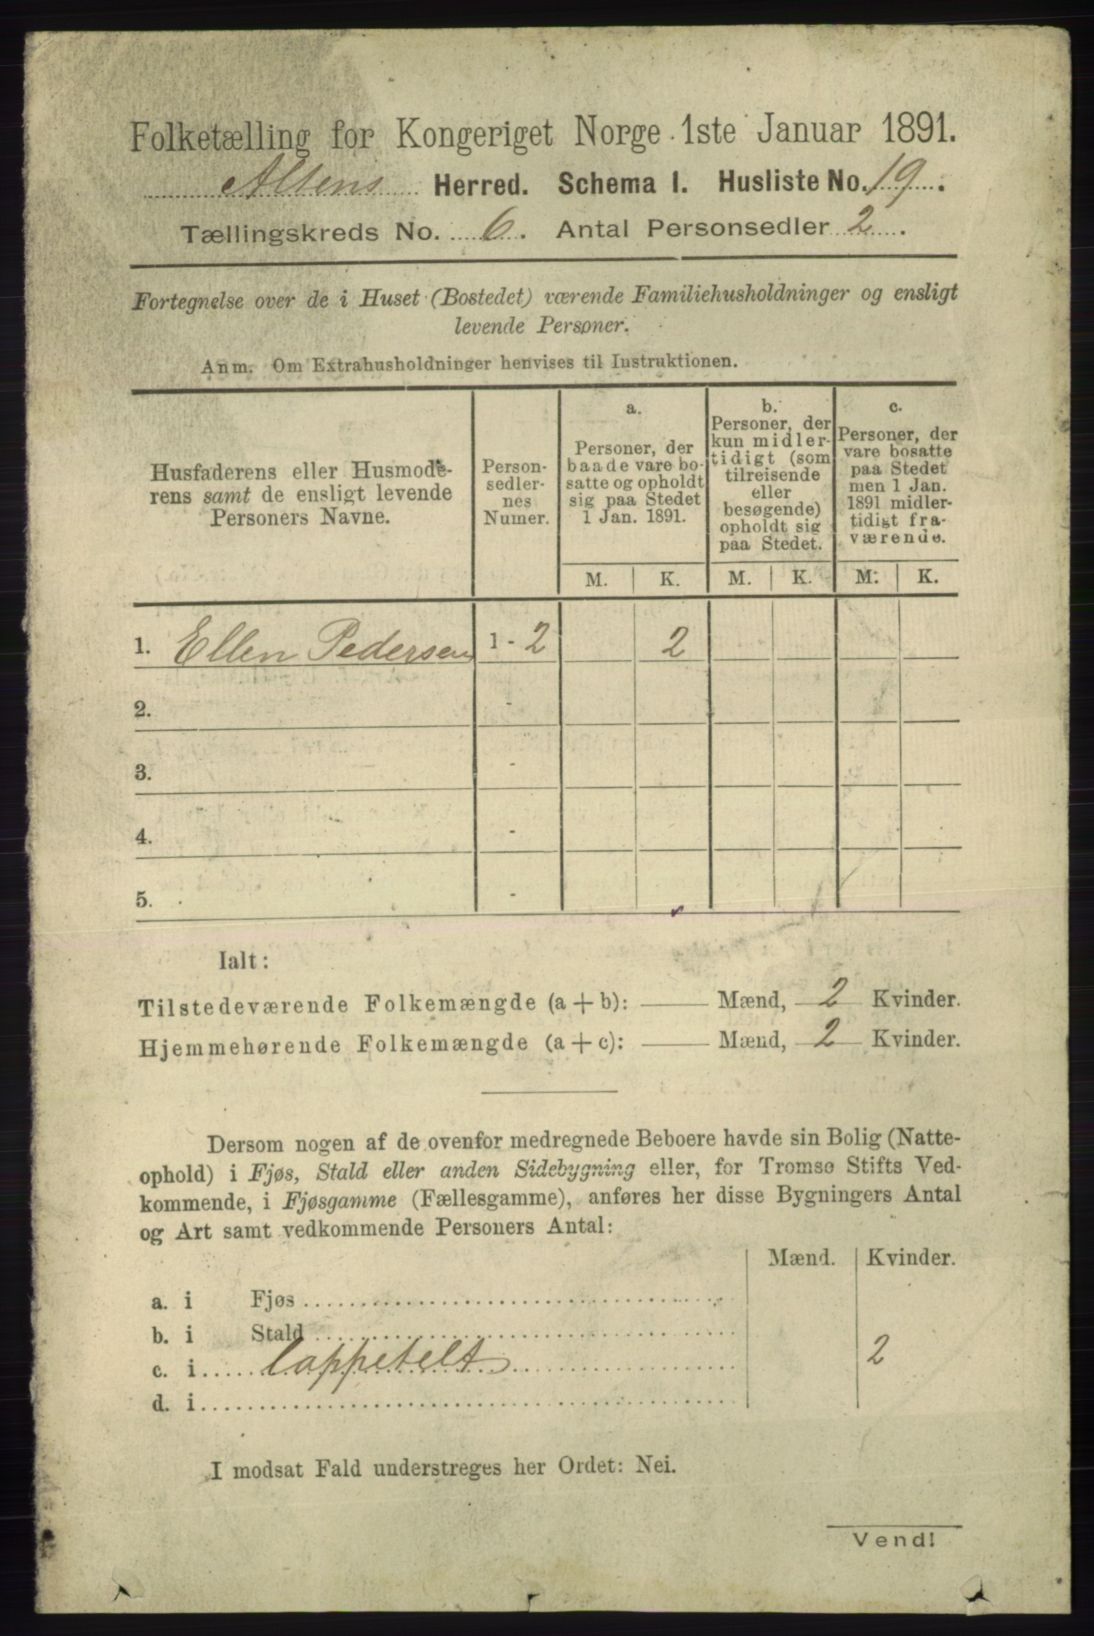 Folketælling for Kongeriget Norge 1ste Januar 1891.
Altens Herred. Schema I. Husliste No. 19.
Tællingskreds No. 6. Antal Personsedler 2.
Fortegnelse over de i Huset (Bostedet) værende Familiehusholdninger og ensligt
levende Personer.
Anm. Om Extrahusholdninger henvises til Instruktionen.
Husfaderens eller Husmode-
rens samt de ensligt levende
Personers Navne.
Person-
sedler-
nes
Numer.
a.
Personer, der
baade vare bo-
satte og opholdt
sig paa Stedet
1 Jan. 1891.
b.
Personer, der
kun midler-
tidigt (som
tilreisende
eller
besøgende)
opholdt sig
paa Stedet.
c.
Personer, der
vare bosatte
paa Stedet
men 1 Jan.
1891 midler-
tidigt fra-
værende.
M. K. M. K. M. K.
1. Ellen Pedersen 1 - 2 2
2. -
3. -
4. -
5. -
Ialt:
Tilstedeværende Folkemængde (a + b): — Mænd, 2 Kvinder.
Hjemmehørende Folkemængde (a + c): — Mænd, 2 Kvinder.
Dersom nogen af de ovenfor medregnede Beboere havde sin Bolig (Natte-
ophold) i Fjøs, Stald eller anden Sidebygning eller, for Tromsø Stifts Ved-
kommende, i Fjøsgamme (Fællesgamme), anføres her disse Bygningers Antal
og Art samt vedkommende Personers Antal:
Mænd. Kvinder.
a. i Fjøs
b. i Stald
c. i lappetelt 2
d. i
I modsat Fald understreges her Ordet: Nei.
Vend!